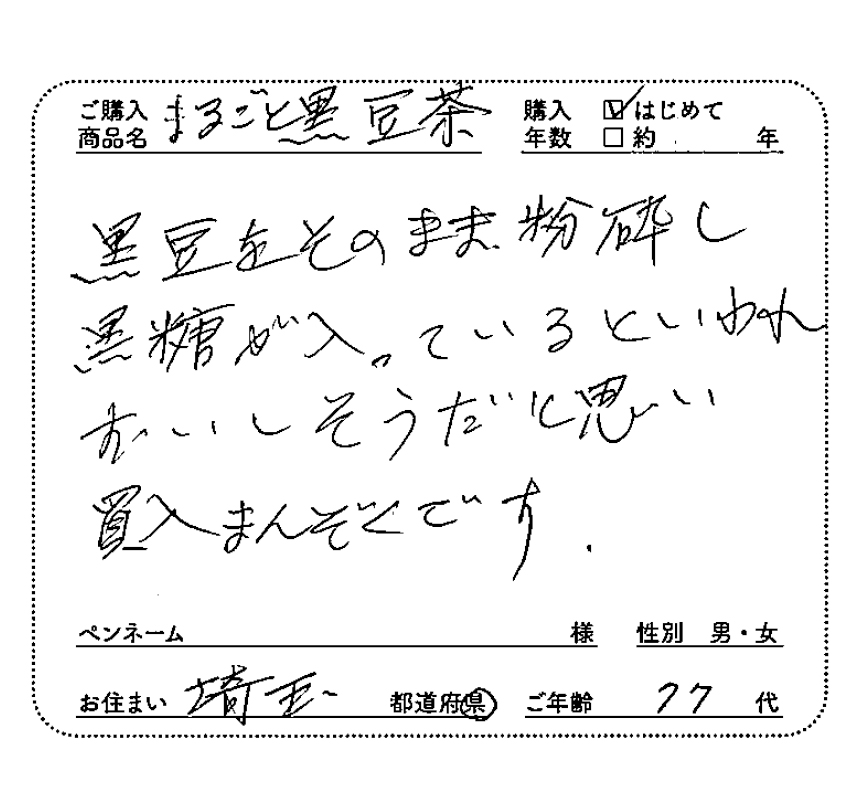 ご購入商品名 まるごと黒豆茶 購入年数 ☑はじめて □約 年
黒豆をそのまま粉砕し
黒糖が入っているといわれ
おいしそうだと思い
買入まんぞくです.
ペンネーム 様 性別 男・女
お住まい 埼玉 都道府県 ご年齢 77代